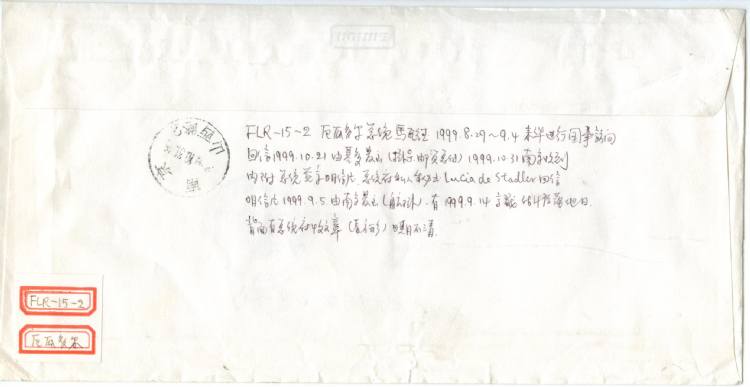 FLR-15-2 厄瓜多尔总统馬瓦德 1999.8.29~9.4 来华进行国事访问
回信1999.10.21由基多发出 1999.10.31南京收到
内附总统签字明信片. 总统府私人秘书Lucia de Stadler回信
明信片1999.9.5.由南京发出(航挂). 有1999.9.14
背面有总统府收文章 日期不清.
南京
FLR-15-2
厄瓜多尔